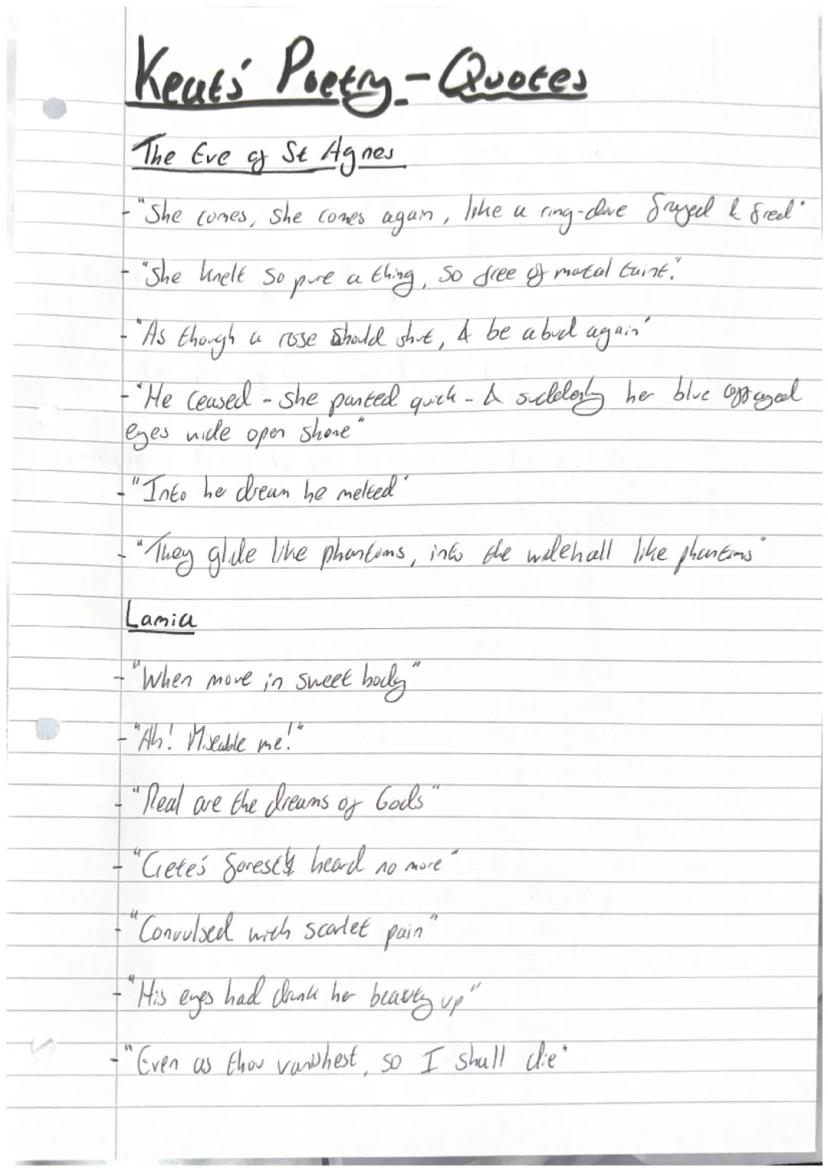 Keats' Poetry - Quotes
The Eve of St Agnes
- "She comes, she comes again, like a ring-dove frayed & fled"
- "She knelt so pure a thing, so free of mortal taint."
- "As though a rose should shut, & be a bud again"
- "He ceased - she panted quick - & suddenly her blue affrayed
eyes wide open shone"
- "Into her dream he melted"
- "They glide like phantoms, into the wide hall like phantoms"
Lamia
- "When move in sweet body"
- "Ah! Miserable me!"
- "Real are the dreams of Gods"
- "Crete's forests heard no more"
- "Convulsed with scarlet pain"
- "His eyes had drunk her beauty up"
- "Even as thou vanishest, so I shall die"